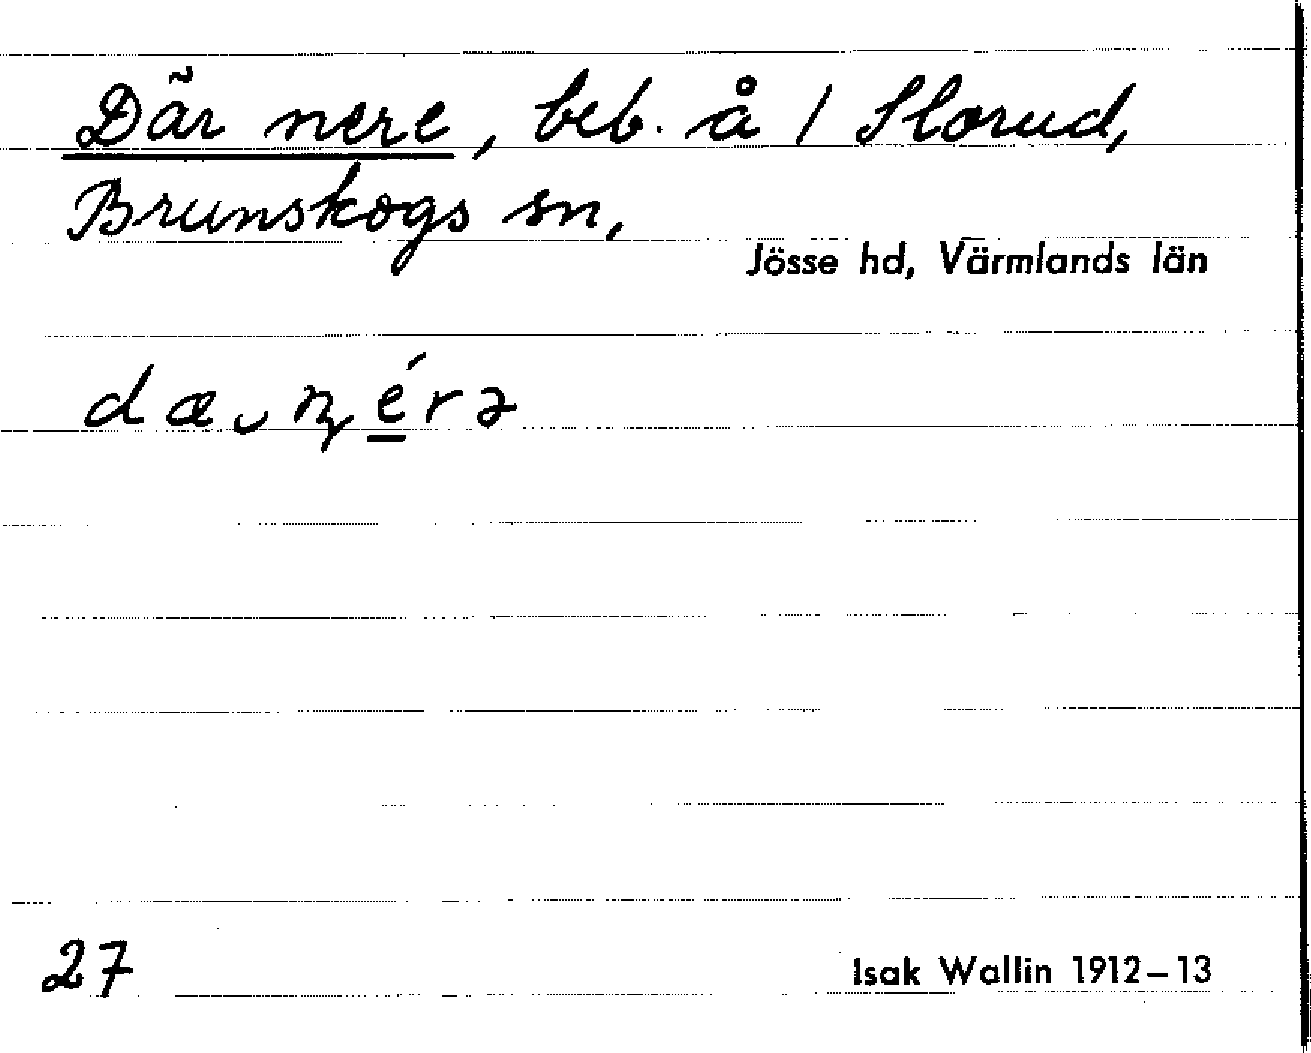 Där nere, beb. å 1 Slorud,
Brunskogs sn,
Jösse hd, Värmlands län
dæ‿ɳérə
27
Isak Wallin 1912–13